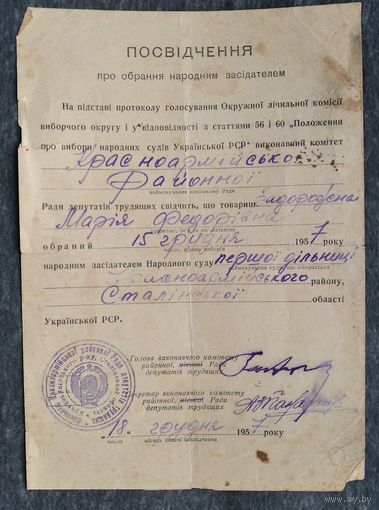 ПОСВІДЧЕННЯ
про обрання народним засідателем
На підставі протоколу голосування Окружної лічильної комісії
виборчого округу і у відповідності з статтями 56 і 60 „Положення
про вибори народних судів Української РСР" виконавчий комітет
Красноармійської
Районної
найменування виконкому Ради
Ради депутатів трудящих свідчить, що товариш
Марія Федорівна
обраний 15 грудня 1957 року
народним засідателем Народного суду першої дільниці
Красноармійського району,
Сталінської області
Української РСР.
Голова виконавчого комітету
районної, міської Ради
депутатів трудящих
Секретар виконавчого комітету
районної, міської Ради
депутатів трудящих
18 грудня 1957 року
число місяць видачі посвідчення
www.ay.by